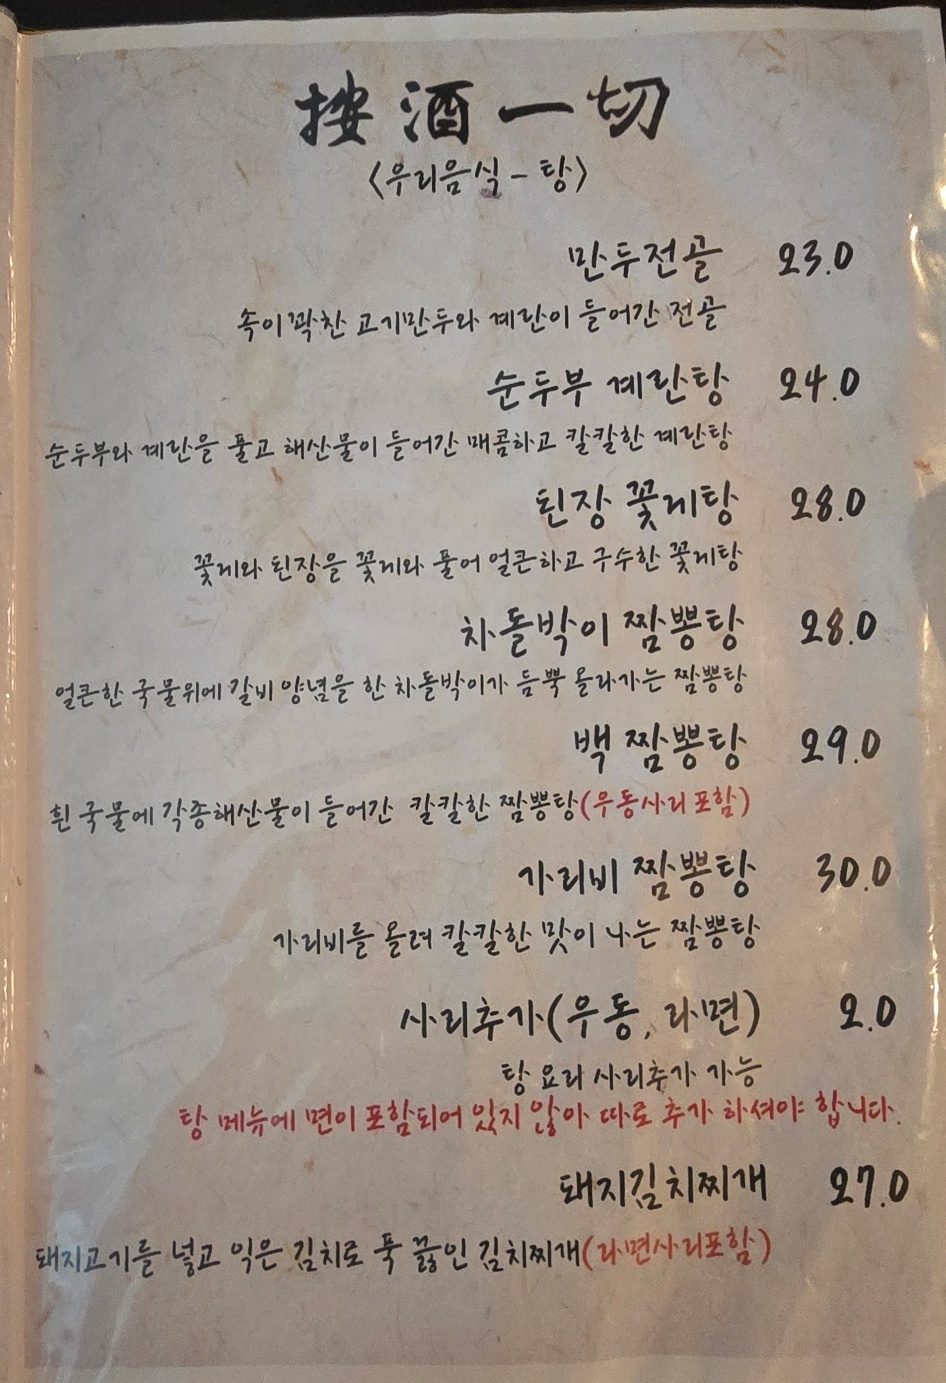 按酒一切
<우리음식 - 탕>
만두전골 23.0
속이꽉찬 고기만두와 계란이 들어간 전골
순두부 계란탕 24.0
순두부와 계란을 풀고 해산물이 들어간 매콤하고 칼칼한 계란탕
된장 꽃게탕 28.0
꽃게와 된장을 꽃게와 풀어 얼큰하고 구수한 꽃게탕
차돌박이 짬뽕탕 28.0
얼큰한 국물위에 갈비 양념을 한 차돌박이가 듬뿍 올라가는 짬뽕탕
백 짬뽕탕 29.0
흰 국물에 각종해산물이 들어간 칼칼한 짬뽕탕(우동사리포함)
가리비 짬뽕탕 30.0
가리비를 올려 칼칼한 맛이 나는 짬뽕탕
사리추가(우동, 라면) 2.0
탕 요리 사리추가 가능
탕 메뉴에 면이 포함되어 있지 않아 따로 추가 하셔야 합니다.
돼지김치찌개 27.0
돼지고기를 넣고 익은 김치로 푹 끓인 김치찌개(라면사리포함)